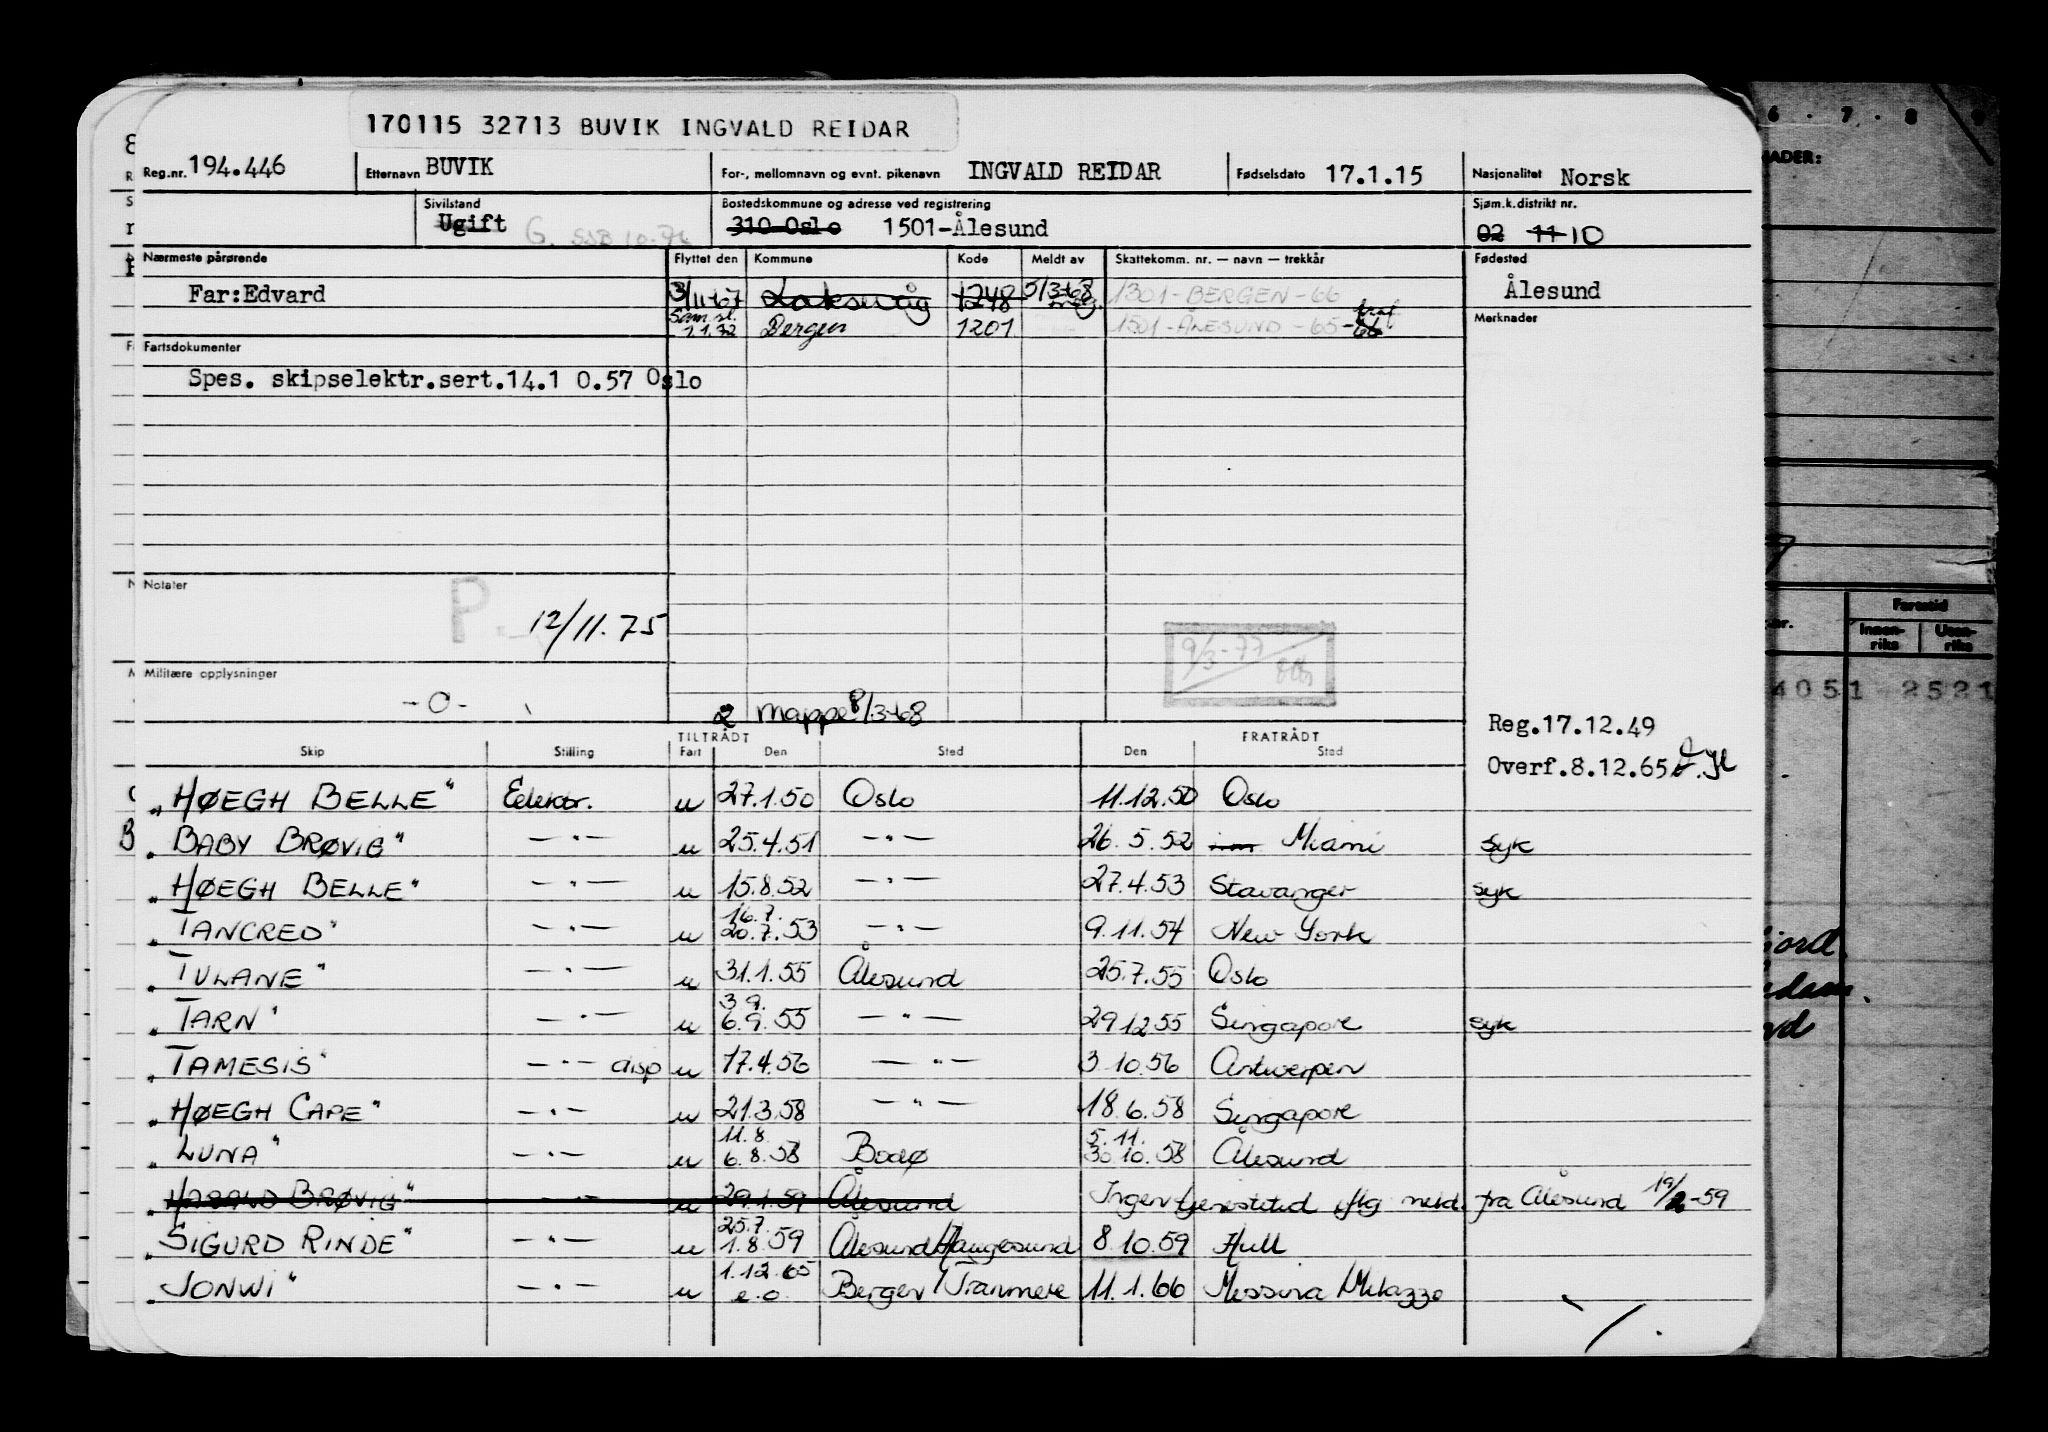 170115 32713 BUVIK INGVALD REIDAR
Reg.nr. 194.446 Etternavn BUVIK For-, mellomnavn og evnt. pikenavn INGVALD REIDAR Fødselsdato 17.1.15 Nasjonalitet Norsk
Sivilstand Ugift G. SSB 10-76 Bostedskommune og adresse ved registrering 310-Oslo 1501-Ålesund Sjøm.k.distrikt nr. 02 11 10
Nærmeste pårørende Flyttet den Kommune Kode Meldt av Skattekomm. nr. — navn — trekkår Fødested
Far:Edvard 3/11-67 Laksevåg 1248 5/3-68 1301-BERGEN-66 Ålesund
Sam.sl. 1.1.72 Bergen 1201 1501-ÅLESUND-65-66 Merknader
Fartsdokumenter
Spes. skipselektr.sert.14.1 0.57 Oslo
Notater
P 12/11.75
9/3-77
Militære opplysninger
-0-
2 mappe 8/3-68
Reg.17.12.49
Overf.8.12.65
TILTRÅDT FRATRÅDT
Skip Stilling Fart Den Sted Den Sted
"HØEGH BELLE" Elektr. u 27.1.50 Oslo 11.12.50 Oslo
"BABY BRØVIG" —"— u 25.4.51 —"— 26.5.52 Miami syk
"HØEGH BELLE" —"— u 15.8.52 —"— 27.4.53 Stavanger syk
"TANCRED" —"— u 16.7. 20.7.53 —"— 9.11.54 New York
"TULANE" —"— u 31.1.55 Ålesund 25.7.55 Oslo
"TARN" —"— u 3.9. 6.9.55 —"— 29.12.55 Singapore syk
"TAMESIS" —"— disp u 17.4.56 —"— 3.10.56 Antwerpen
"HØEGH CAPE" —"— u 21.3.58 —"— 18.6.58 Singapore
"LUNA" —"— u 11.8. 6.8.58 Bodø 5.11. 30.10.58 Ålesund
"HARALD BRØVIG" —"— u 29.1.59 Ålesund Ingen tjenestetid iflg meld. fra Ålesund 19/2-59
"SIGURD RINDE" —"— u 25.7. 1.8.59 Ålesund/Haugesund 8.10.59 Hull
"JONWI" —"— u 1.12.65 e.o. Bergen/Tranmere 11.1.66 Messina/Milazzo
6 . 7 . 8 . 9
Fartstid
Innen-riks Uten-riks
4051 2521